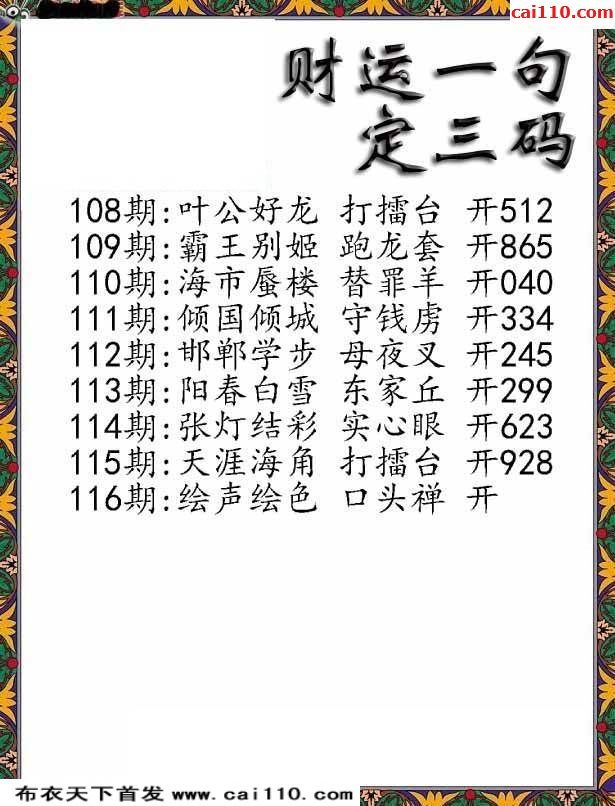 cai110.com
财运一句
定三码
108期:叶公好龙 打擂台 开512
109期:霸王别姬 跑龙套 开865
110期:海市蜃楼 替罪羊 开040
111期:倾国倾城 守钱虏 开334
112期:邯郸学步 母夜叉 开245
113期:阳春白雪 东家丘 开299
114期:张灯结彩 实心眼 开623
115期:天涯海角 打擂台 开928
116期:绘声绘色 口头禅 开
布衣天下首发 www.cai110.com